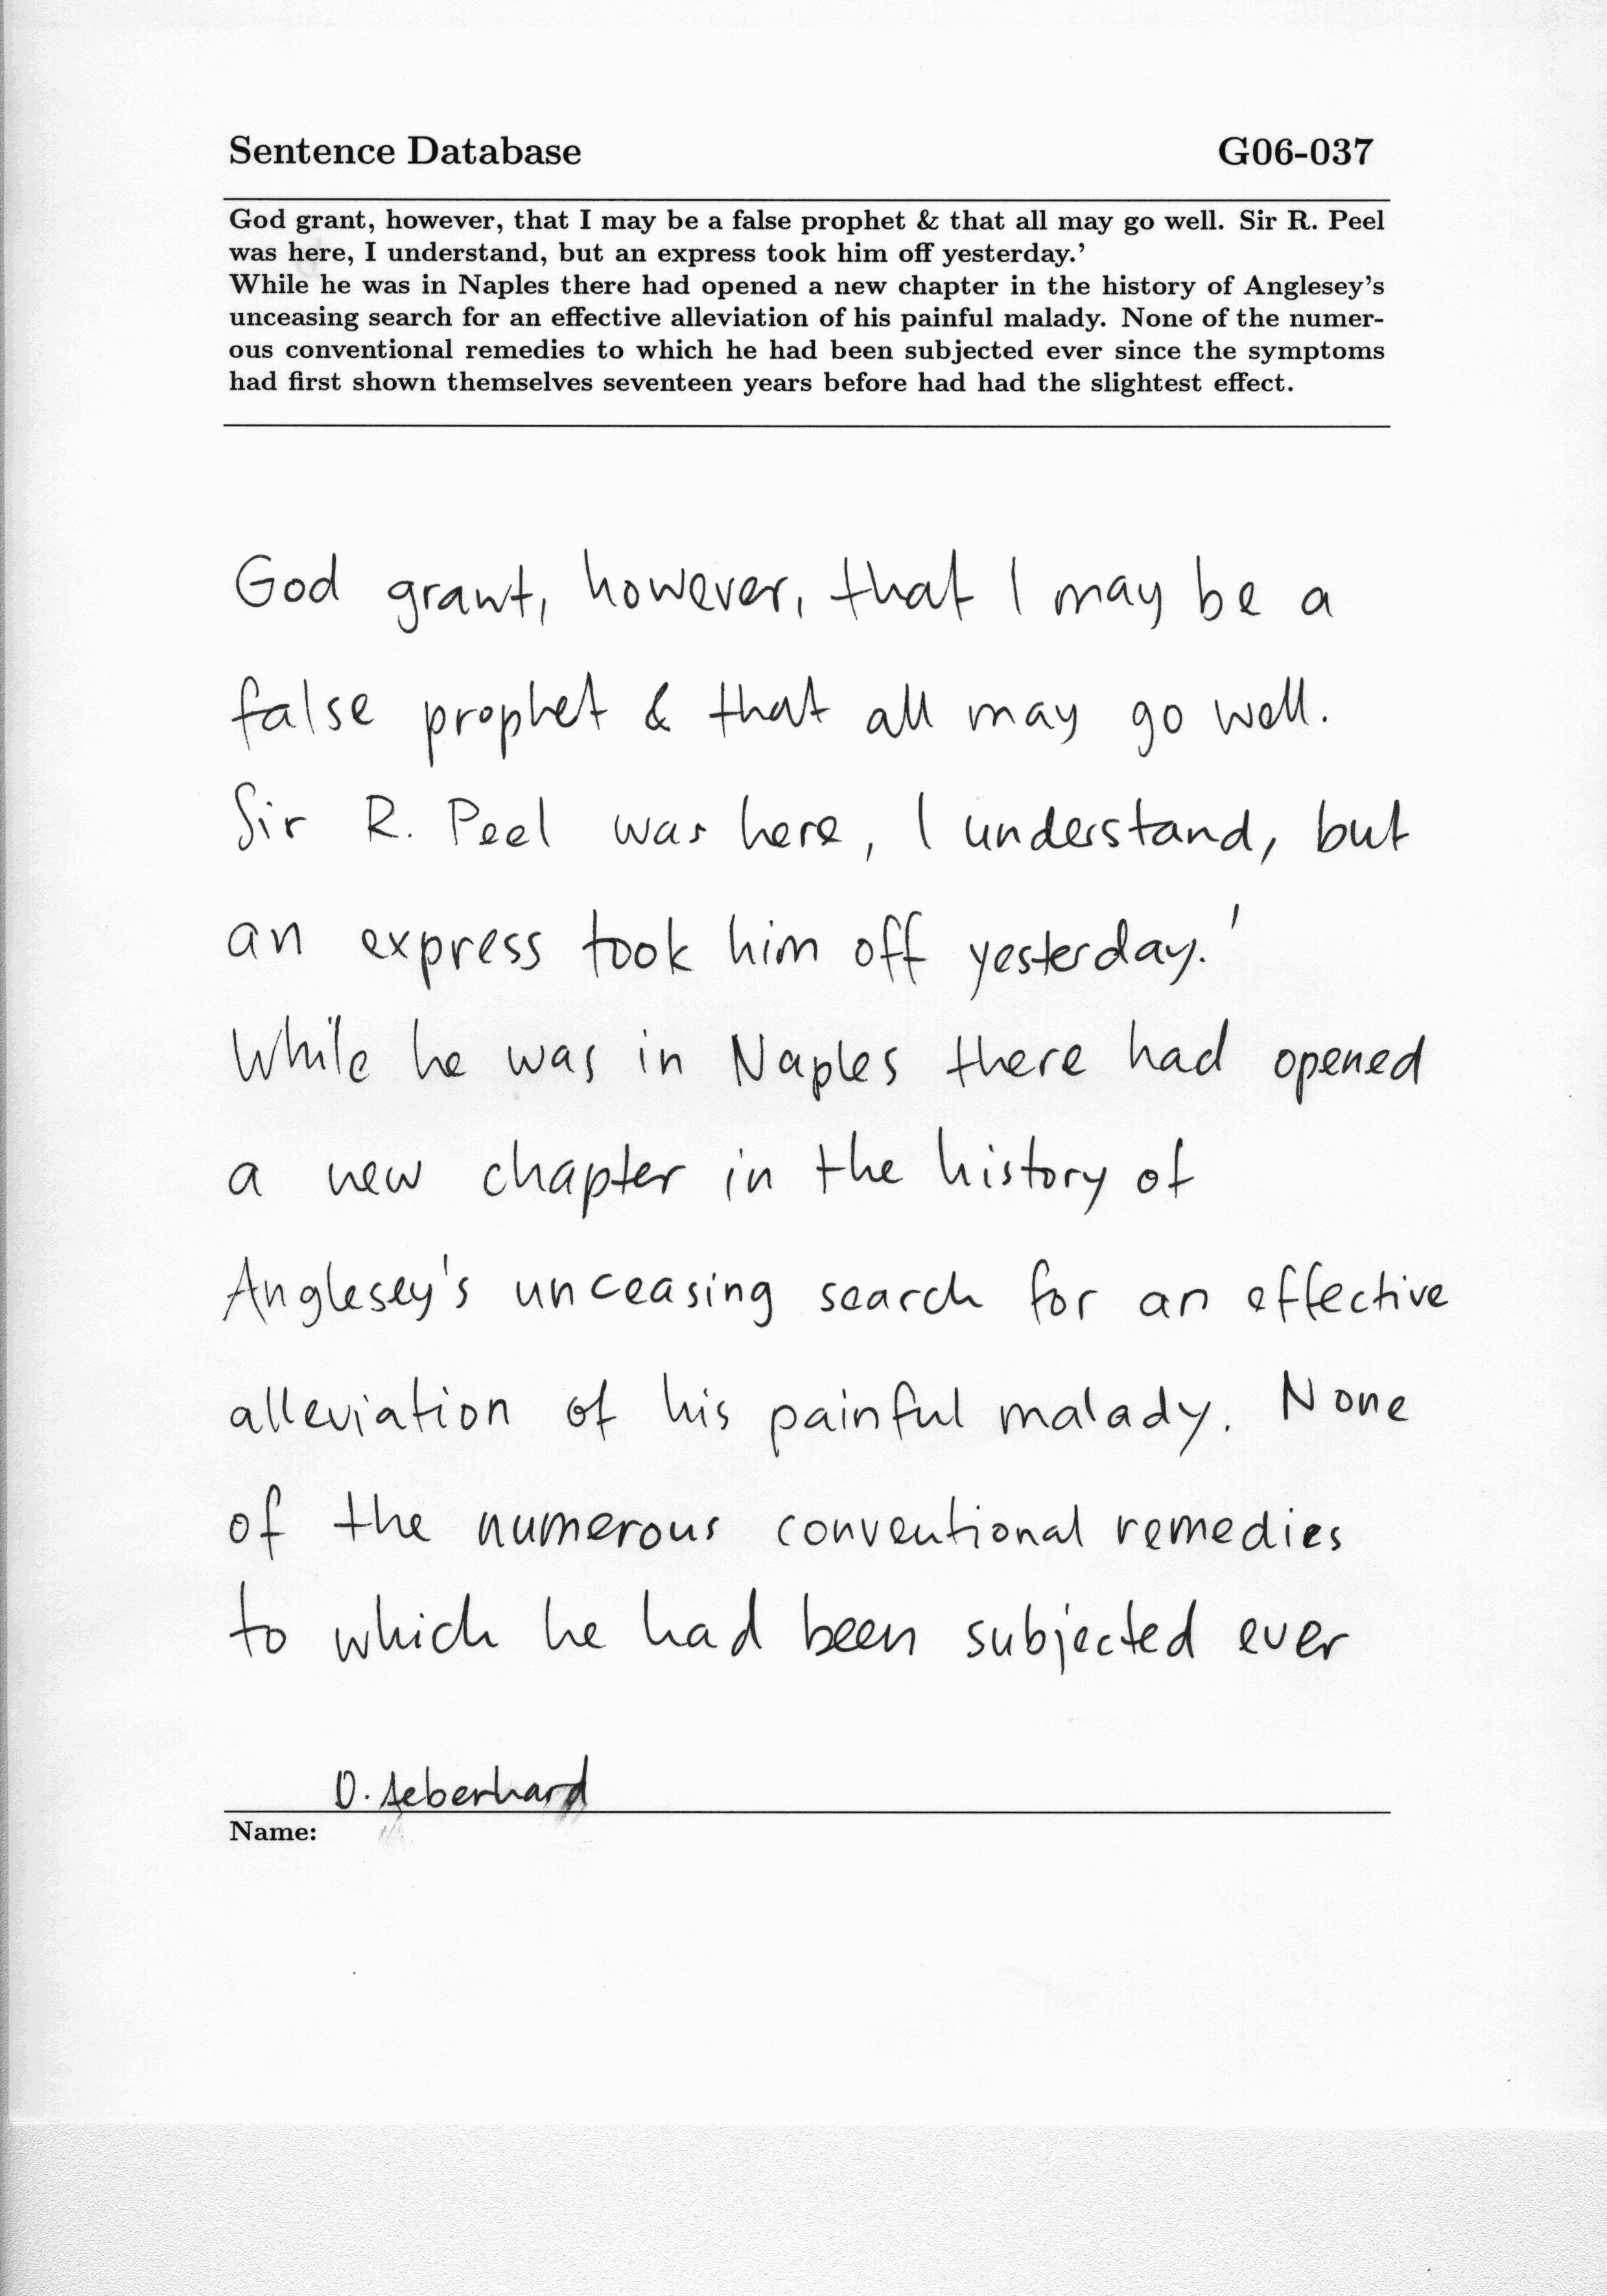 Sentence Database G06-037
God grant, however, that I may be a false prophet & that all may go well. Sir R. Peel
was here, I understand, but an express took him off yesterday.'
While he was in Naples there had opened a new chapter in the history of Anglesey's
unceasing search for an effective alleviation of his painful malady. None of the numer-
ous conventional remedies to which he had been subjected ever since the symptoms
had first shown themselves seventeen years before had had the slightest effect.
God grant, however, that I may be a
false prophet & that all may go well.
Sir R. Peel was here, I understand, but
an express took him off yesterday.'
While he was in Naples there had opened
a new chapter in the history of
Anglesey's unceasing search for an effective
alleviation of his painful malady. None
of the numerous conventional remedies
to which he had been subjected ever
D. Aeberhard
Name: